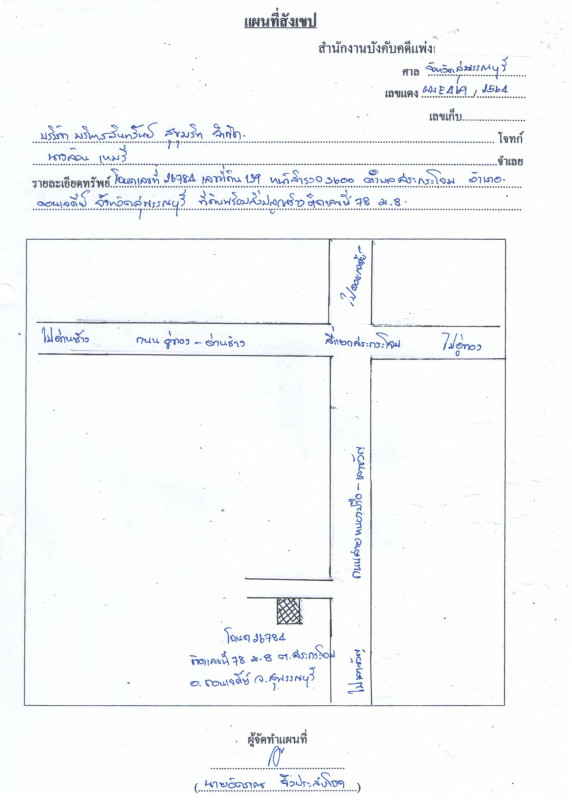 แผนที่สังเขป
สำนักงานบังคับคดีแพ่ง
ศาล จังหวัดสุพรรณบุรี
เลขแดง ผบE469/2564
เลขเก็บ
บริษัท บริหารสินทรัพย์ สุขุมวิท จำกัด โจทก์
เหมรี จำเลย
รายละเอียดทรัพย์ โฉนดเลขที่ 26784 เลขที่ดิน 159 หน้าสำรวจ 3600 ตำบลสระกระโจม อำเภอ
ดอนเจดีย์ จังหวัดสุพรรณบุรี ที่ดินพร้อมสิ่งปลูกสร้าง ติดเลขที่ 78 ม.8
ไปดอนเจดีย์
ไปด่านช้าง ถนน อู่ทอง - ด่านช้าง สี่แยกสระกระโจม ไปอู่ทอง
โฉนด 26784
ติดเลขที่ 78 ม.8 ต.สระกระโจม
อ.ดอนเจดีย์ จ.สุพรรณบุรี
ผู้จัดทำแผนที่